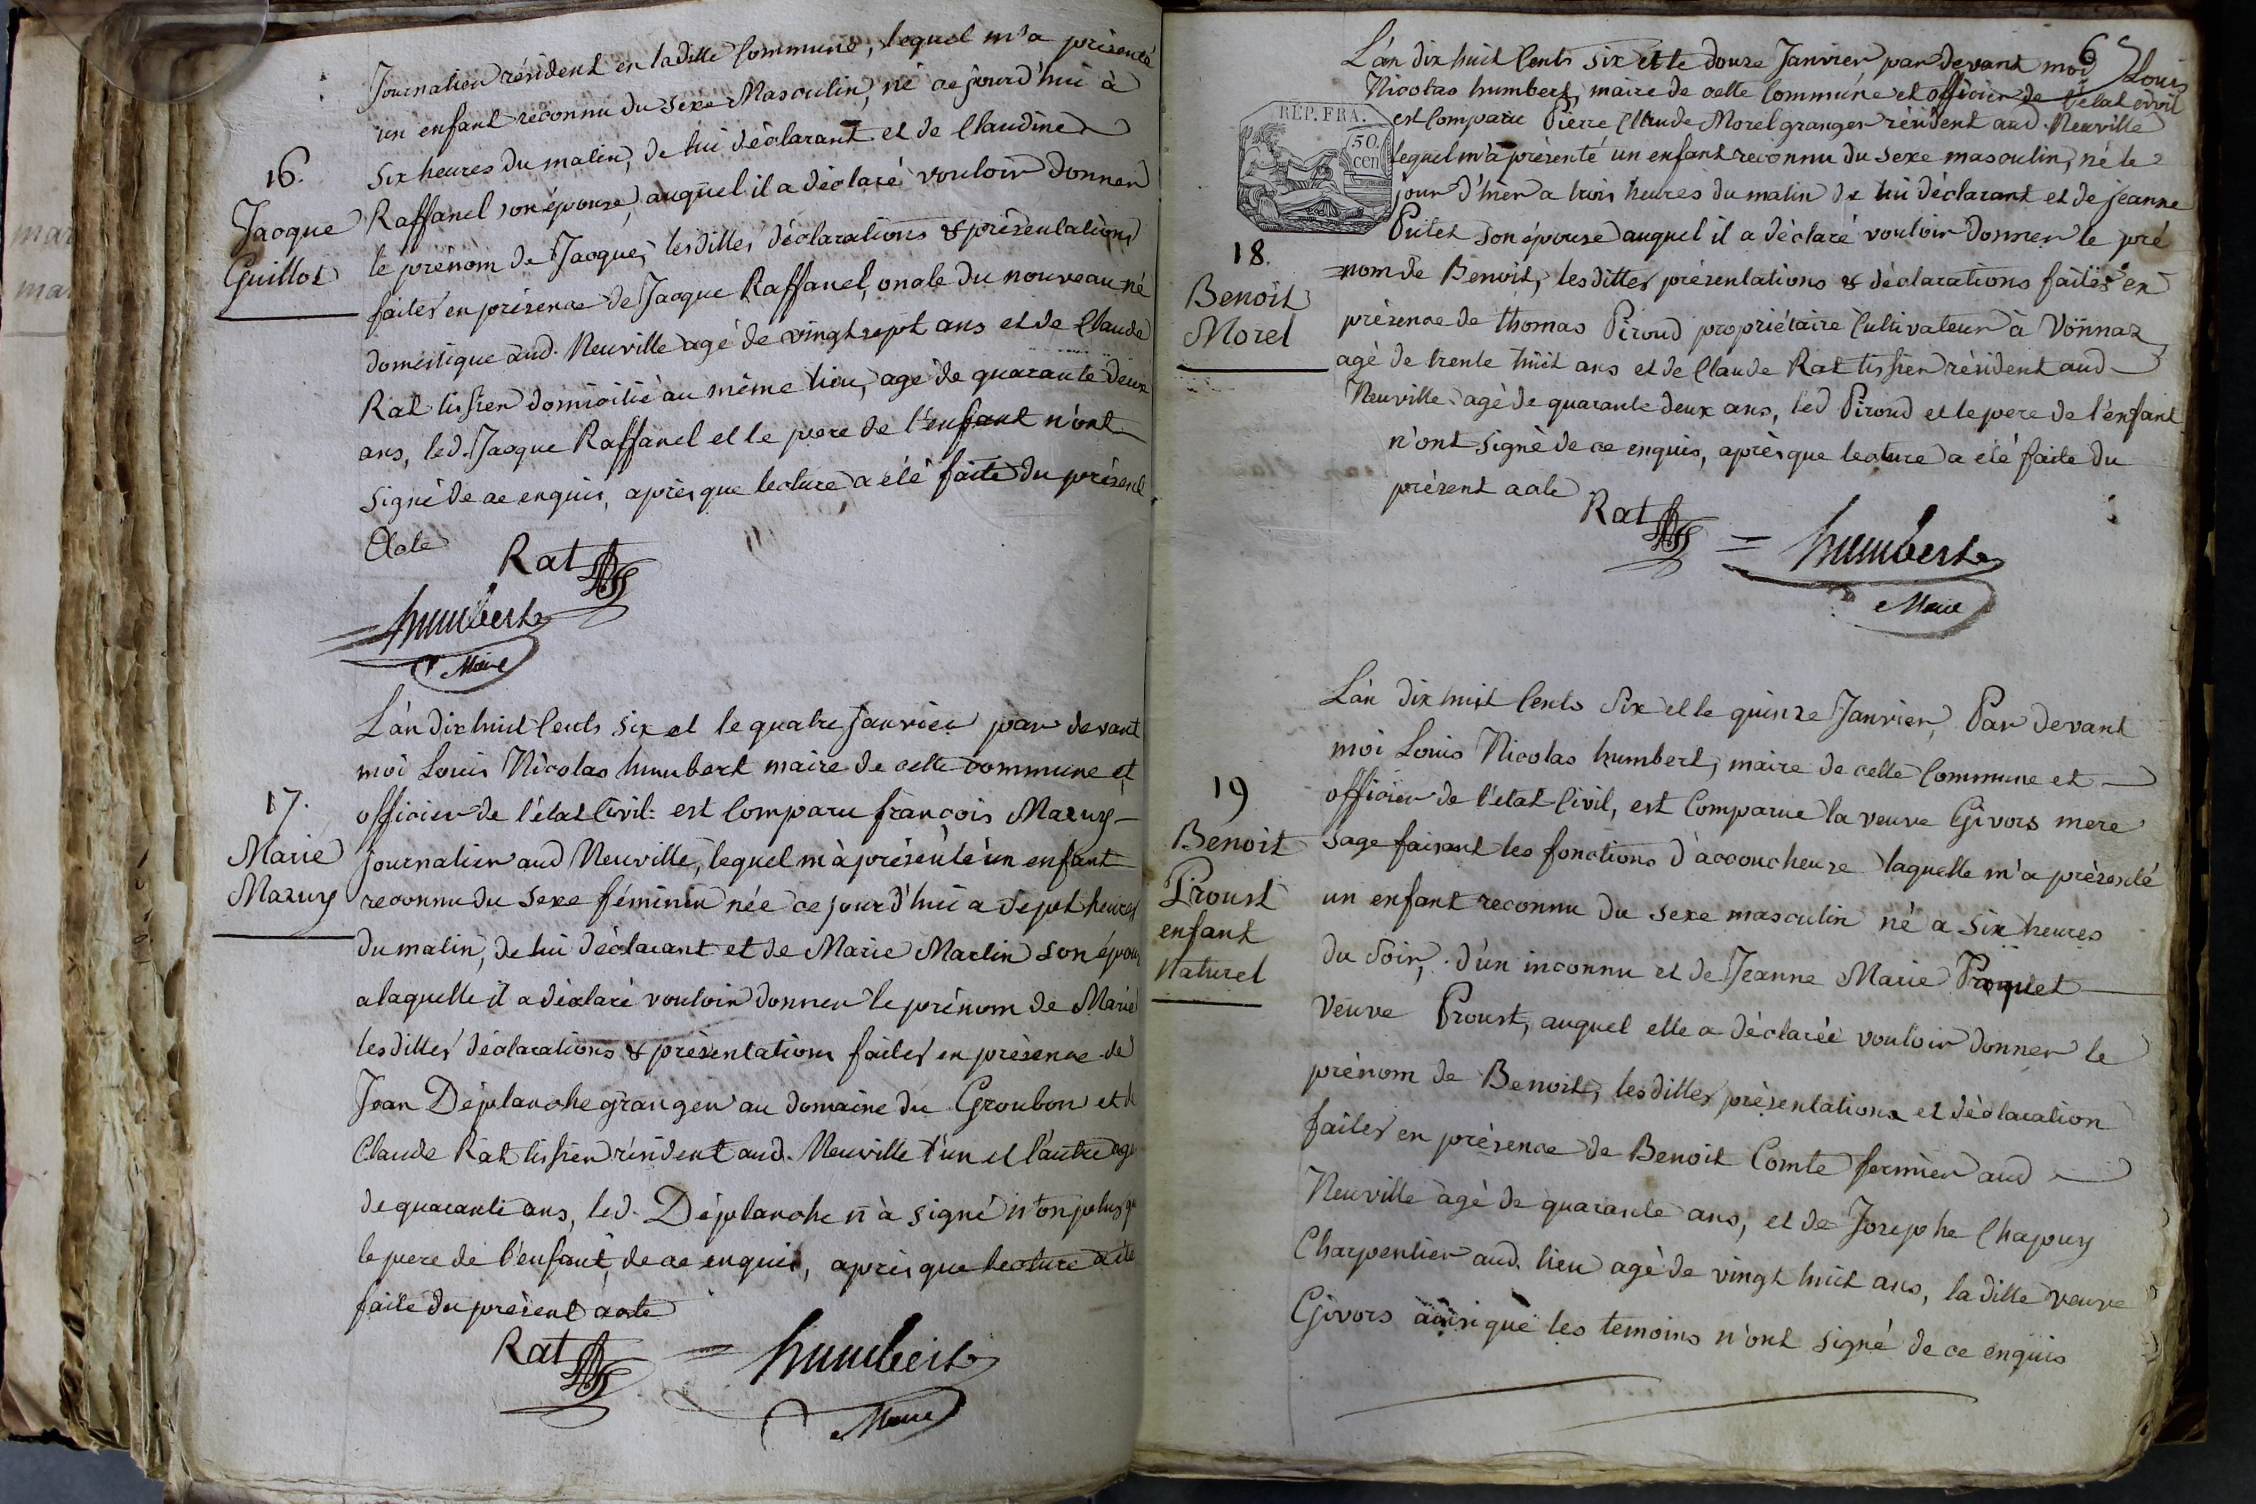 Journalier résident en laditte Commune, lequel m'a présenté
un enfant reconnu du sexe Masculin, né ce jourd'hui à
six heures du matin, de lui déclarant et de Claudine
16.
Jacque
Guillot
Raffanel son épouse, auquel il a déclaré vouloir donner
le prénom de Jacque, lesdittes déclarations & présentations
faites en présence de Jacque Raffanel, oncle du nouveau né
domestique aud. Neuville agé de vingt sept ans et de Claude
Rat tissier domicilié au même lieu, agé de quarante deux
ans, led. Jacque Raffanel et le pere de l'enfant n'ont
signé de ce enquis, après que lecture a été faite du présent
acte
Rat
humbert
Maire
L'an dix huit Cents six et le quatre janvier par devant
moi Louis Nicolas humbert maire de cette commune et
17.
Marie
Mazuy
officier de l'état Civil: est Comparu françois Mazuy
journalier aud Neuville, lequel m'à présenté un enfant
reconnu du sexe féminin née ce jourd'hui a sept heures
du matin, de lui déclarant et de Marie Martin son épou
a laquelle il a déclaré vouloir donner le prénom de Marie
lesdittes déclarations & présentations faites en présence de
Jean Déplanche granger au domaine du Groubon et
Claude Rat tissier résident aud. Neuville l'un et l'autre agé
de quarante ans, led. Déplanche n'à signé n'on plus q
le pere de l'enfant, de ce enquis, après que lecture a été
faite du présent acte
Rat
humbert
Maire
6
L'an dix huit Cents six et le douze Janvier par devant moi Louis
Nicolas humbert, maire de cette Commune et officier de l'état civil
REP. FRA.
50.
cen
est Comparu Pierre Claude Morel granger résident aud. Neuville
lequel m'a présenté un enfant reconnu du sexe masculin, né le
jour d'hier a trois heures du matin de lui déclarant et de jeanne
Putet son épouse auquel il a déclaré vouloir donner le pré
18.
Benoit
Morel
=nom de Benoit, lesdittes présentations & déclarations faites en
présence de thomas Piroud propriétaire Cultivateur à Vonnaz
agé de trente huit ans et de Claude Rat tissier résident aud
Neuville agé de quarante deux ans, led Piroud et le pere de l'enfant
n'ont signé de ce enquis, après que lecture a été faite du
présent acte
Rat
humbert
Maire
L'an dix huit Cents six et le quinze Janvier, Par devant
moi Louis Nicolas humbert, maire de cette Commune et
19
Benoit
Proust
enfant
Naturel
officier de l'état Civil, est Comparue la veuve Givors mere
sage faisant les fonctions d'accoucheuse laquelle m'a présenté
un enfant reconnu du sexe masculin né a six heures
du soir, d'un inconnu et de Jeanne Marie
veuve Proust, auquel elle a déclarée vouloir donner le
prénom de Benoit, lesdittes présentations et déclaration
faites en présence de Benoit Comte fermier aud
Neuville agé de quarante ans, et de Josephe Chapuy
Charpentier aud. lieu agé de vingt huit ans, la ditte veuve
Givors ainsi que les temoins n'ont signé de ce enquis